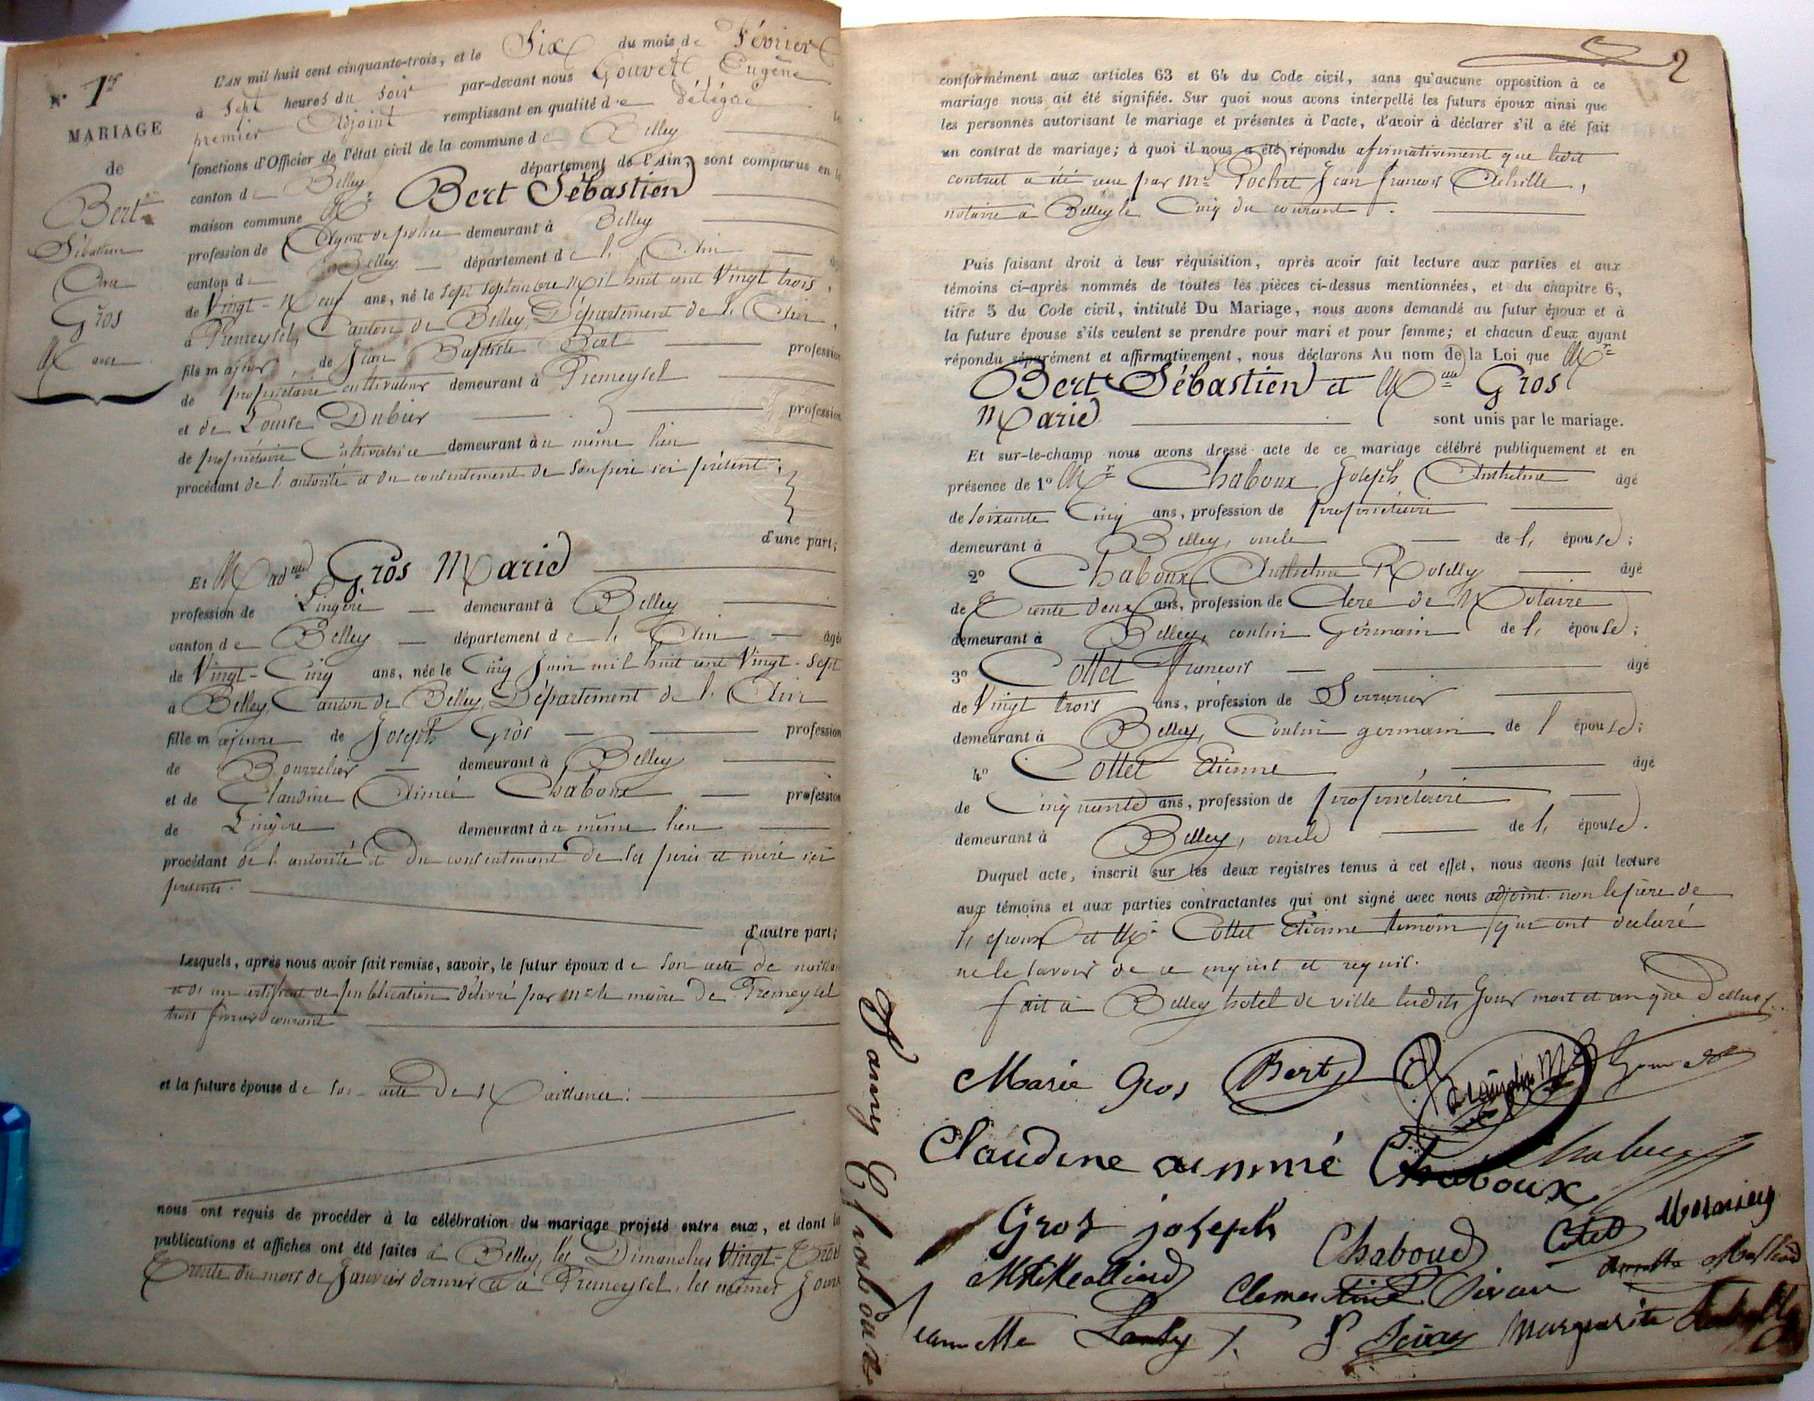 N° 1er
MARIAGE
de
Bert
Sébastien
Et
Gros
Marie
L'AN mil huit cent cinquante-trois, et le Six du mois de Février
à Sept heures du Soir par-devant nous Gouvet Eugène
premier Adjoint remplissant en qualité de délégué les
fonctions d'Officier de l'état civil de la commune de Belley
canton de Belley département de l'Ain, sont comparus en la
maison commune Mr Bert Sébastien
profession de Agent de police demeurant à Belley
canton de Belley département de l'Ain âgé
de Vingt-Neuf ans, né le Sept Septembre Mil huit cent Vingt trois,
à Premeyzel, Canton de Belley, Département de l'Ain,
fils majeur, de Jean Baptiste Bert profession
de propriétaire cultivateur demeurant à Premeyzel
et de Louise Dubier profession
de propriétaire Cultivatrice demeurant au même lieu
procédant de l'autorité et du consentement de son père ici présent;
d'une part;
Et Madelle Gros Marie
profession de Lingère demeurant à Belley
canton de Belley département de l'Ain âgée
de Vingt-Cinq ans, née le Cinq Juin mil huit cent Vingt-Sept
à Belley, Canton de Belley, Département de l'Ain
fille majeure de Joseph Gros profession
de Bourrelier demeurant à Belley
et de Claudine Aimée Chaboux profession
de Lingère demeurant au même lieu
procédant de l'autorité et du consentement de ses père et mère ici
présents.
d'autre part;
Lesquels, après nous avoir fait remise, savoir, le futur époux de son acte de naissance
et d'un certificat de publication délivré par Mr le maire de Premeyzel
trois février courant
et la future épouse de son acte de Naissance:
nous ont requis de procéder à la célébration du mariage projeté entre eux, et dont les
publications et affiches ont été faites à Belley, les Dimanches Vingt-Trois
Trente du mois de Janvier dernier et à Premeyzel, les mêmes Jours
Fanny Chaboux
2
conformément aux articles 63 et 64 du Code civil, sans qu'aucune opposition à ce
mariage nous ait été signifiée. Sur quoi nous avons interpellé les futurs époux ainsi que
les personnes autorisant le mariage et présentes à l'acte, d'avoir à déclarer s'il a été fait
un contrat de mariage; à quoi il nous a été répondu afirmativement que ledit
contrat a été reçu par Me Pochet Jean François Achille,
notaire à Belley le Cinq du courant.
Puis faisant droit à leur réquisition, après avoir fait lecture aux parties et aux
témoins ci-après nommés de toutes les pièces ci-dessus mentionnées, et du chapitre 6,
titre 5 du Code civil, intitulé Du Mariage, nous avons demandé au futur époux et à
la future épouse s'ils veulent se prendre pour mari et pour femme; et chacun d'eux ayant
répondu séparément et affirmativement, nous déclarons Au nom de la Loi que Mr
Bert Sébastien et Melle Gros
Marie sont unis par le mariage.
Et sur-le-champ nous avons dressé acte de ce mariage célébré publiquement et en
présence de 1° Mr Chaboux Joseph Anthelme âgé
de soixante Cinq ans, profession de propriétaire
demeurant à Belley, oncle de l'épouse;
2° Chaboux Anthelme Roselly âgé
de Trente deux ans, profession de Clerc de Notaire
demeurant à Belley, cousin Germain de l'épouse;
3° Cottet François âgé
de Vingt trois ans, profession de Serrurier
demeurant à Belley, Cousin germain de l'épouse;
4° Cottet Etienne âgé
de Cinquante ans, profession de propriétaire
demeurant à Belley, oncle de l'épouse.
Duquel acte, inscrit sur les deux registres tenus à cet effet, nous avons fait lecture
aux témoins et aux parties contractantes qui ont signé avec nous adjoint non le père de
l'époux et Mr Cottet Etienne témoin que ont déclaré
ne le savoir de ce enquist et requis.
fait à Belley hotel de ville ledits Jour mois et an que Dessus.
Marie Gros Bert
Claudine aimmé Chaboux
Gros joseph Chaboud Cotet
Clementine
Marguerite